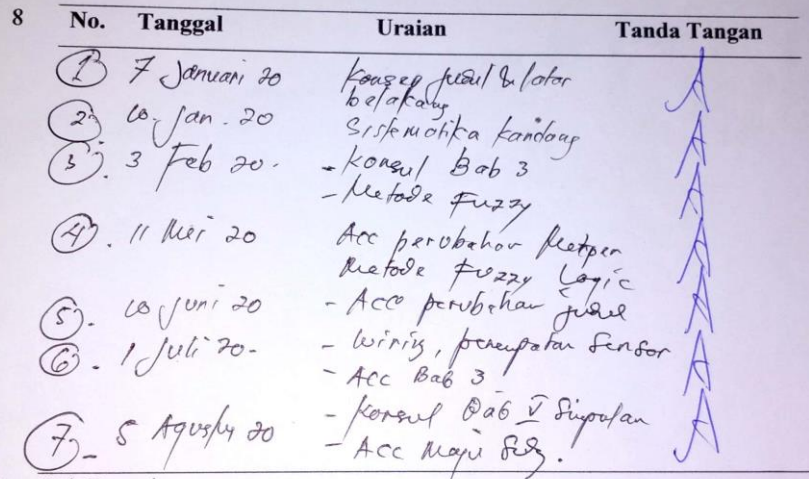 8 No. Tanggal Uraian Tanda Tangan
1 7 Januari 20 Konsep judul & latar
belakang
2 10. Jan. 20 Sistematika kandang
3. 3 Feb 20. - Konsul Bab 3
- Metode Fuzzy
4. 11 Mei 20 Acc perubahan Metpen
Metode Fuzzy Logic
5. 10 Juni 20 - Acc perubahan judul
6. 1 Juli 20- - Wiring, penempatan Sensor
- Acc Bab 3
7- 5 Agustus 20 - Konsul Bab V Simpulan
- Acc Maju